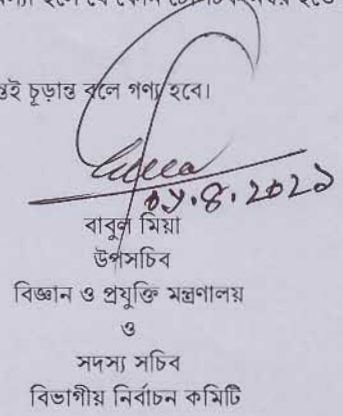 ন্তই চূড়ান্ত বলে গণ্য হবে।
বাবুল মিয়া
উপসচিব
বিজ্ঞান ও প্রযুক্তি মন্ত্রণালয়
ও
সদস্য সচিব
বিভাগীয় নির্বাচন কমিটি